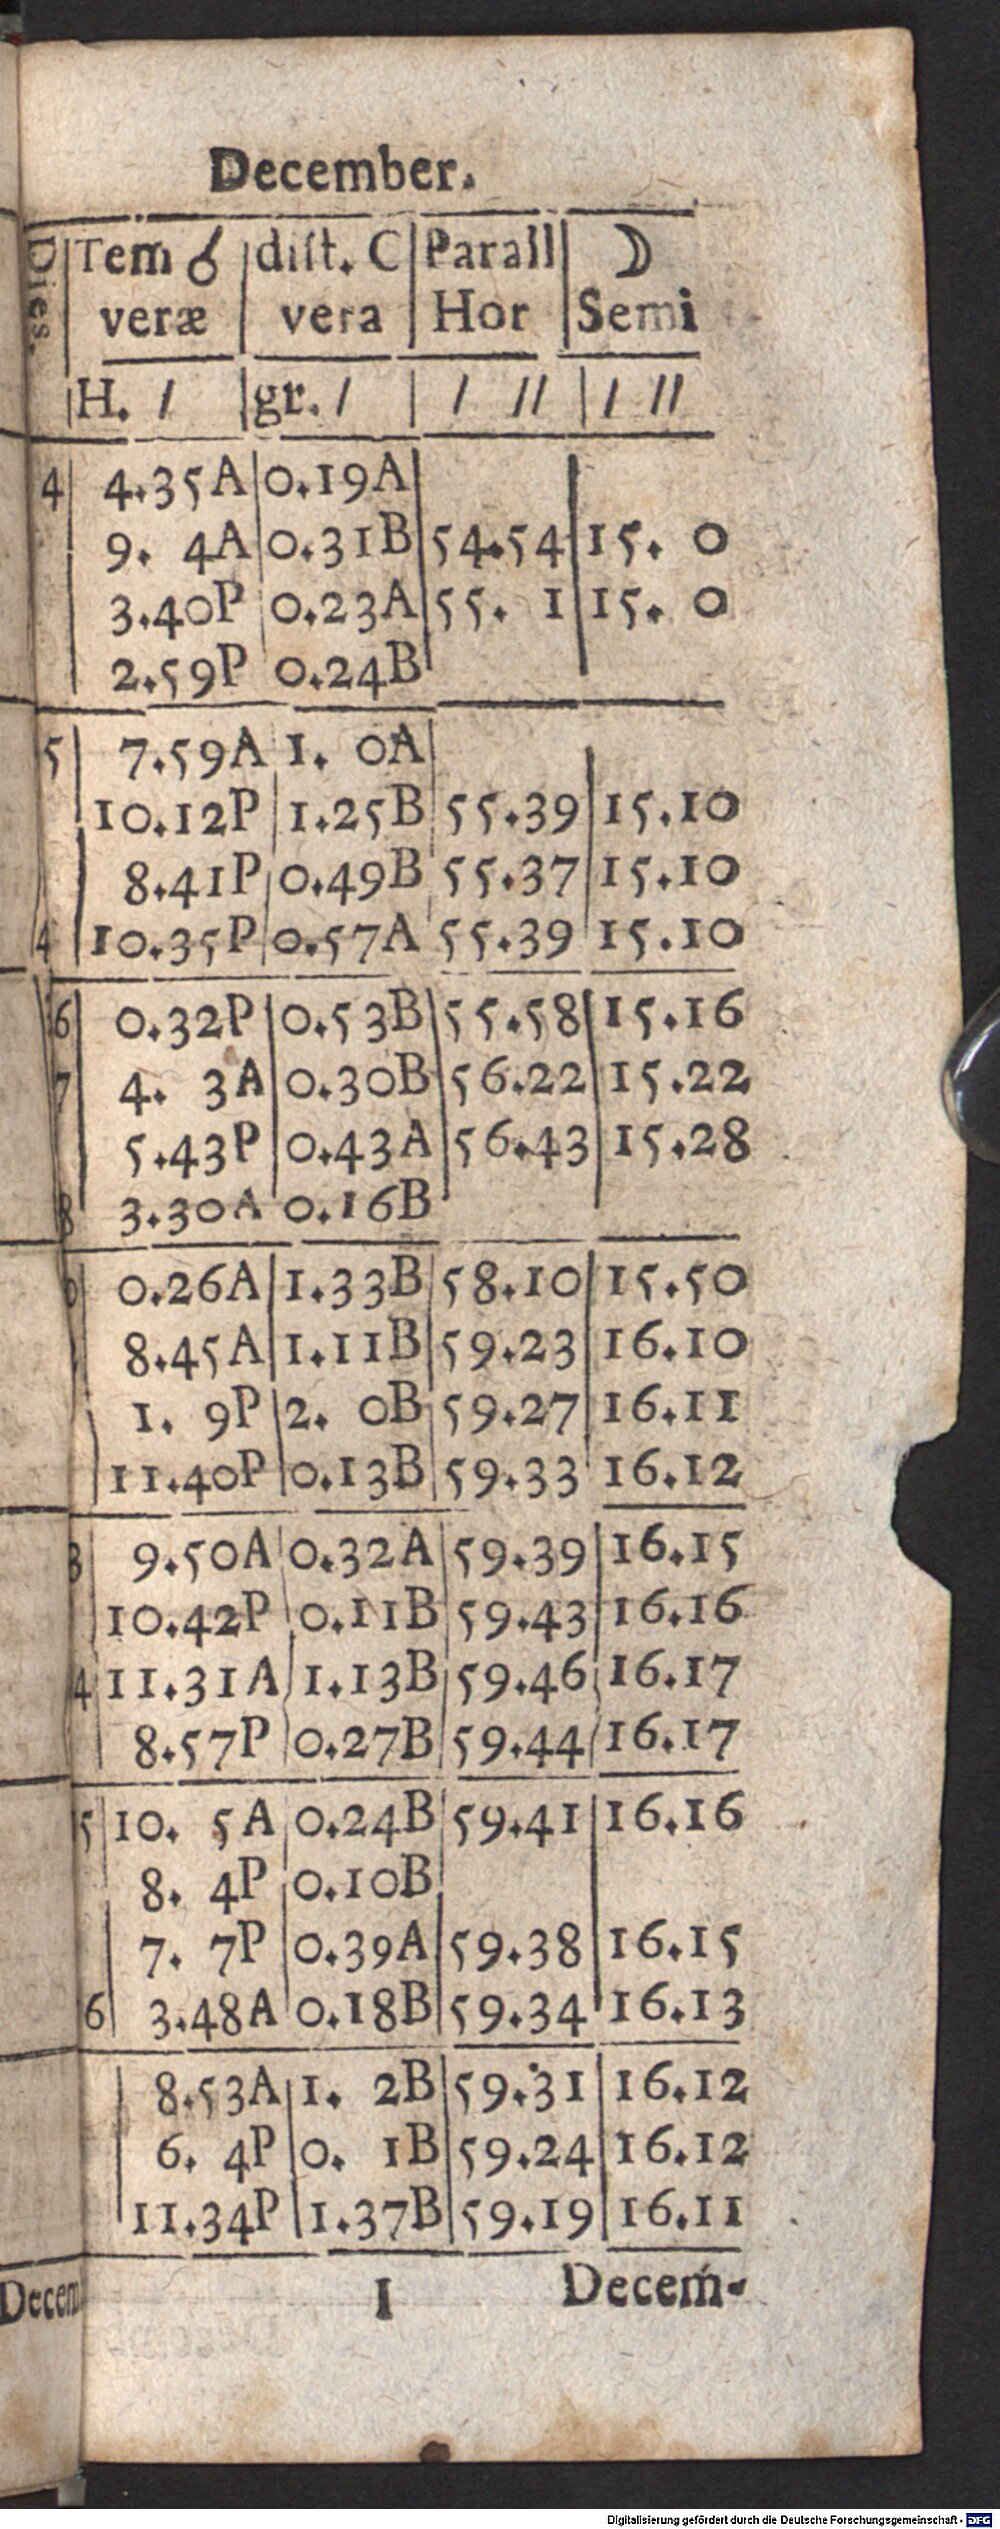 December.
Dies. Tem̄ ☌ diſt. C Parall ☽
veræ vera Hor Semi
H. / gr. / / // / //
4 4.35A 0.19A
9. 4A 0.31B 54.54 15. 0
3.40P 0.23A 55. 1 15. 0
2.59P 0.24B
5 7.59A 1. 0A
10.12P 1.25B 55.39 15.10
8.41P 0.49B 55.37 15.10
4 10.35P 0.57A 55.39 15.10
6 0.32P 0.53B 55.58 15.16
7 4. 3A 0.30B 56.22 15.22
5.43P 0.43A 56.43 15.28
8 3.30A 0.16B
0.26A 1.33B 58.10 15.50
8.45A 1.11B 59.23 16.10
1. 9P 2. 0B 59.27 16.11
11.40P 0.13B 59.33 16.12
3 9.50A 0.32A 59.39 16.15
10.42P 0.11B 59.43 16.16
4 11.31A 1.13B 59.46 16.17
8.57P 0.27B 59.44 16.17
5 10. 5A 0.24B 59.41 16.16
8. 4P 0.10B
7. 7P 0.39A 59.38 16.15
6 3.48A 0.18B 59.34 16.13
8.53A 1. 2B 59.31 16.12
6. 4P 0. 1B 59.24 16.12
11.34P 1.37B 59.19 16.11
Decem I Decem̄-
Digitalisierung gefördert durch die Deutsche Forschungsgemeinschaft - DFG